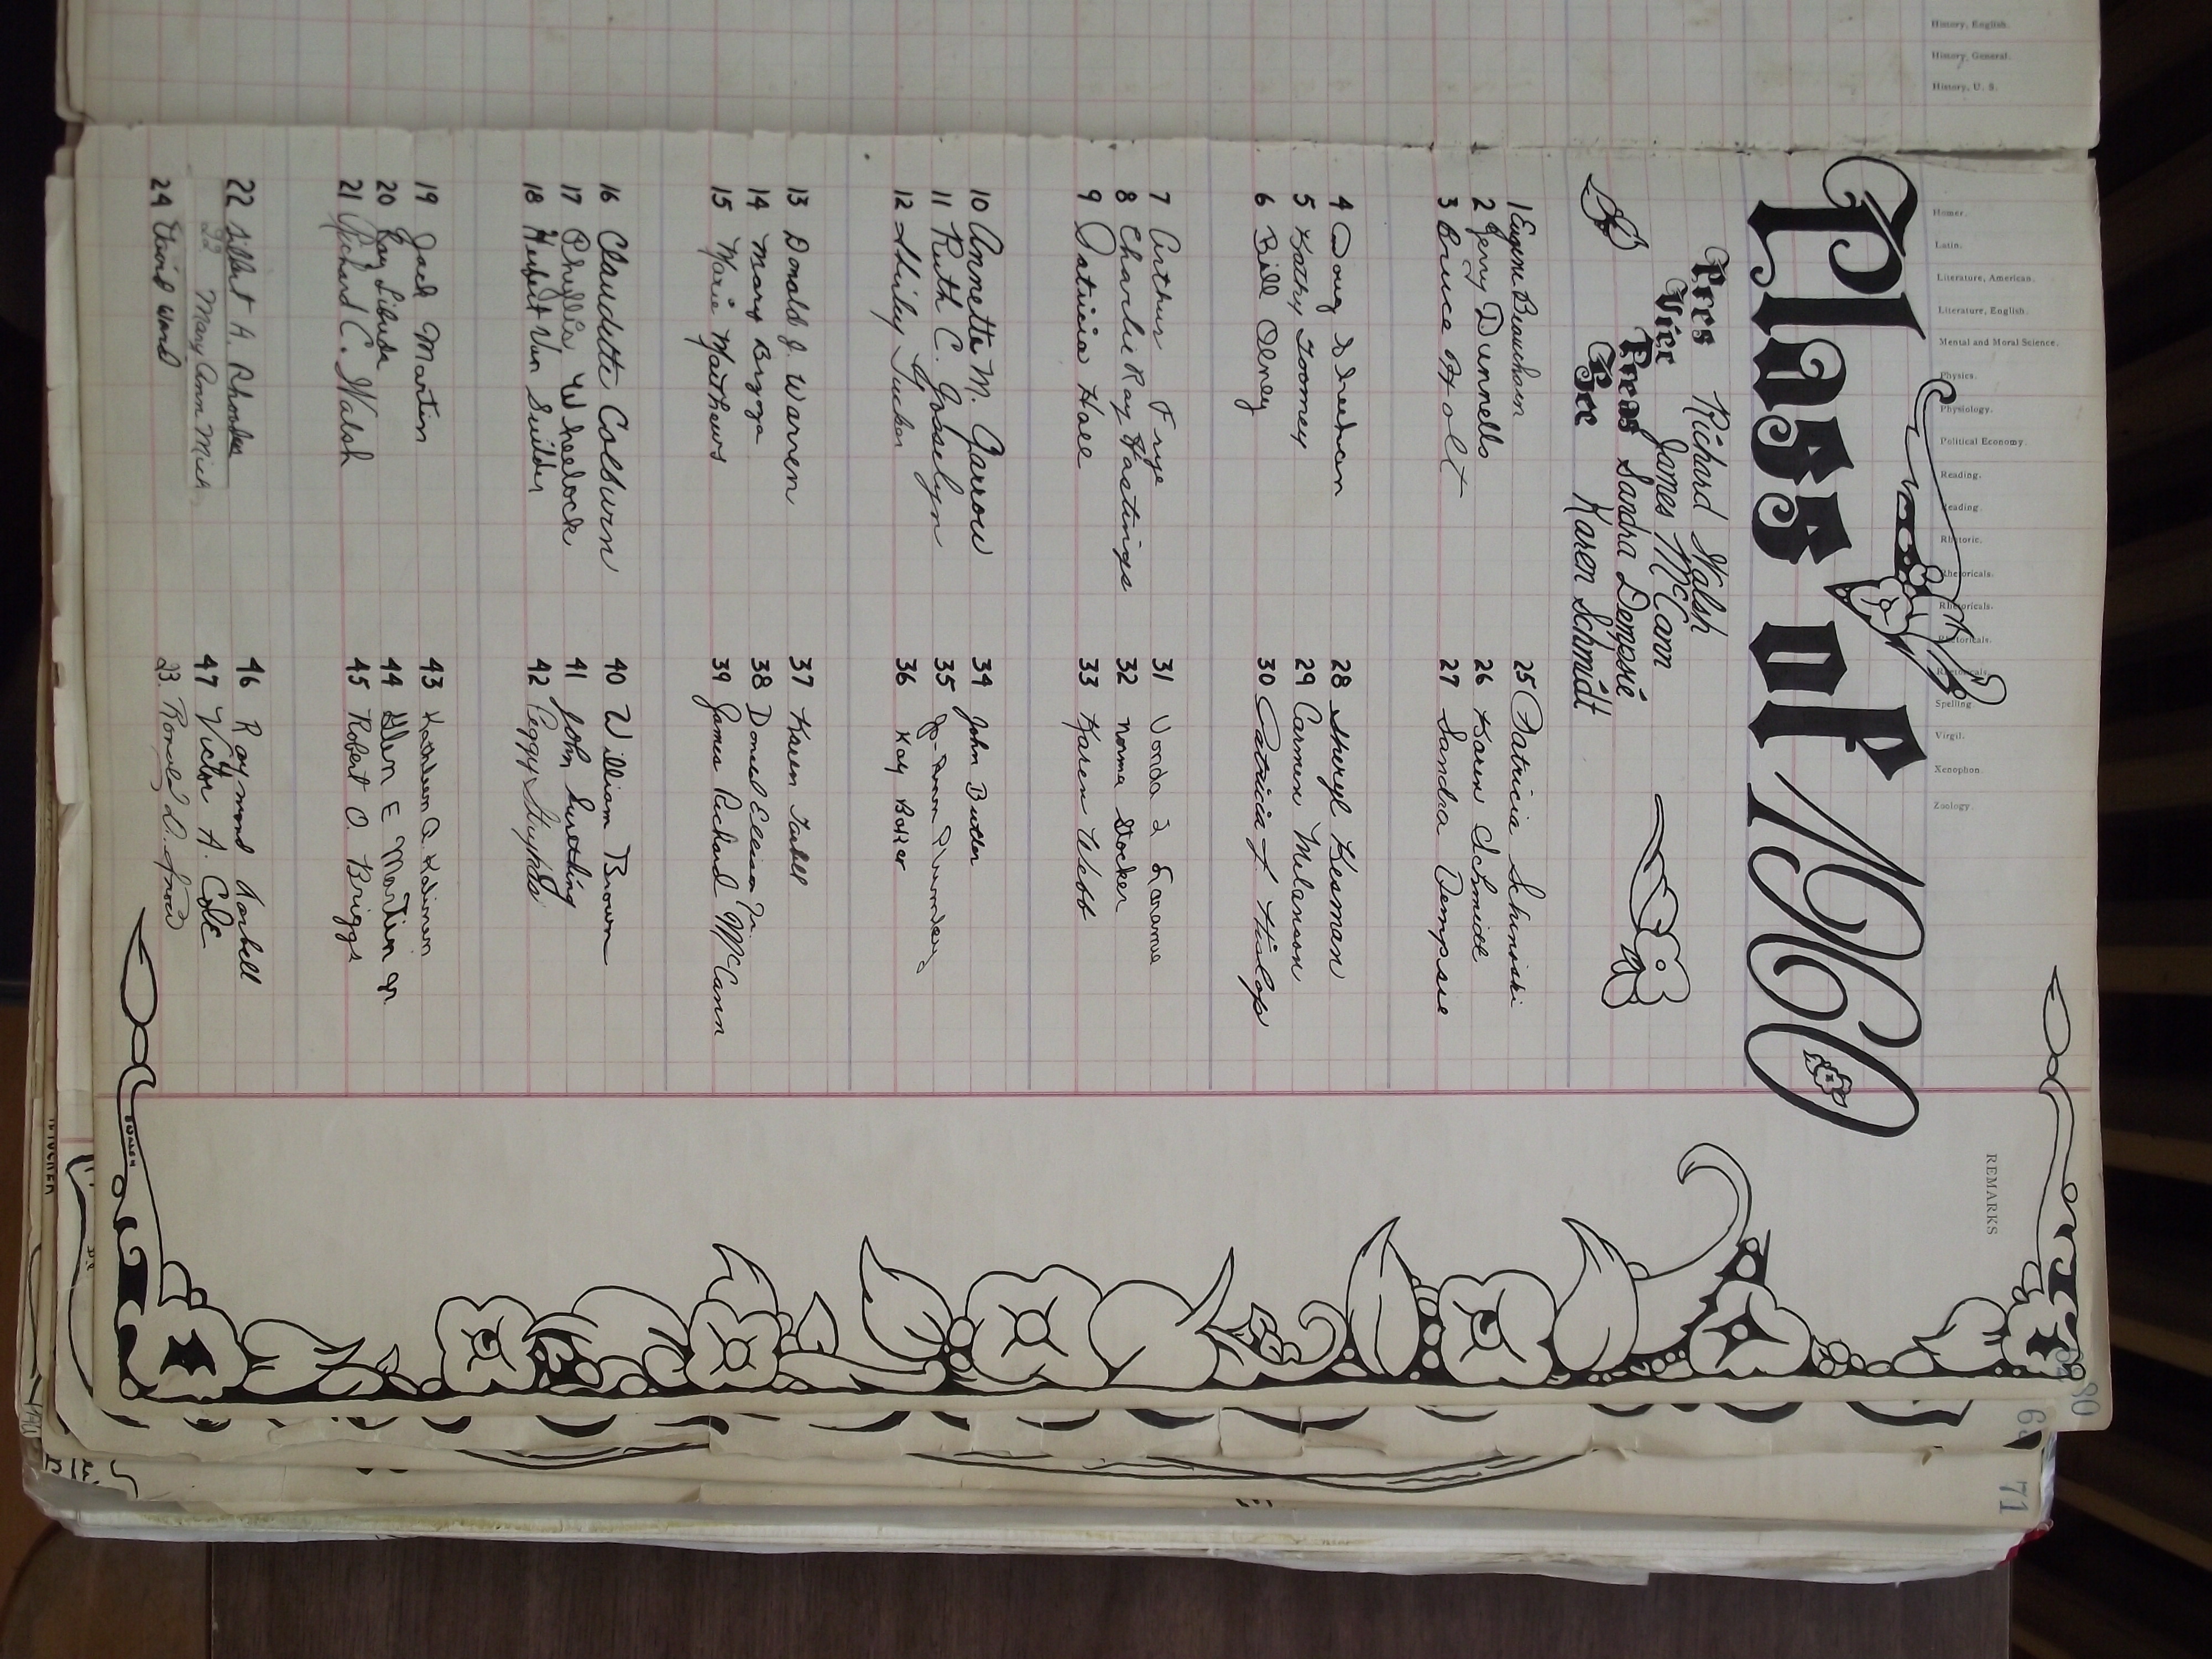 History, English.
History, General.
History, U. S.
Homer.
Latin.
Literature, American.
Literature, English.
Mental and Moral Science.
Physics.
Physiology.
Political Economy.
Reading.
Reading.
Rhetoric.
Rhetoricals.
Rhetoricals.
Rhetoricals.
Rhetoricals.
Spelling.
Virgil.
Xenophon.
Zoology.
REMARKS
Class of 1960
Pres Richard Walsh
Vice James McCann
Treas Sandra Dempsie
Sec Karen Schmidt
1 Eugene Beauchain
2 Jerry Dunnells
3 Bruce Holt
4 Doug
5 Kathy Toomey
6 Bill Olney
7 Arthur Frye
8 Charlie Ray Hastings
9 Patricia Hall
10 Annette M. Garrow
11 Ruth C. Gosselyn
12 Shiley Tucker
13 Donald J. Warren
14 Mary Bryga
15 Marie Matthews
16 Claudette Colburn
17 Phyllis Wheelock
18 Herbert Van Snilder
19 Jack Martin
20 Ray Libuda
21 Richard C. Walsh
22 A. Rhoades
22 Mary Ann Mich
24 David Ward
25 Patricia
26 Karen Schmidt
27 Sandra Dempsie
28 Sheryl Kesman
29 Carmen Melanson
30 Patricia J. Hislop
31 Vonda L Larame
32 Norma Stocker
33 Karen Webb
34 John Butler
35 Jo-Ann Plumley
36 Kay Baker
37 Karen Tarbell
38 Donald Ellison Jr.
39 James Richard McCann
40 William Brown
41 John Sweeting
42 Peggy
43 Kathleen A.
44 Glen E Martin Jr
45 Robert O. Briggs
46 Raymond Tarbell
47 Victor A. Cole
23. Ronald D.
80
71